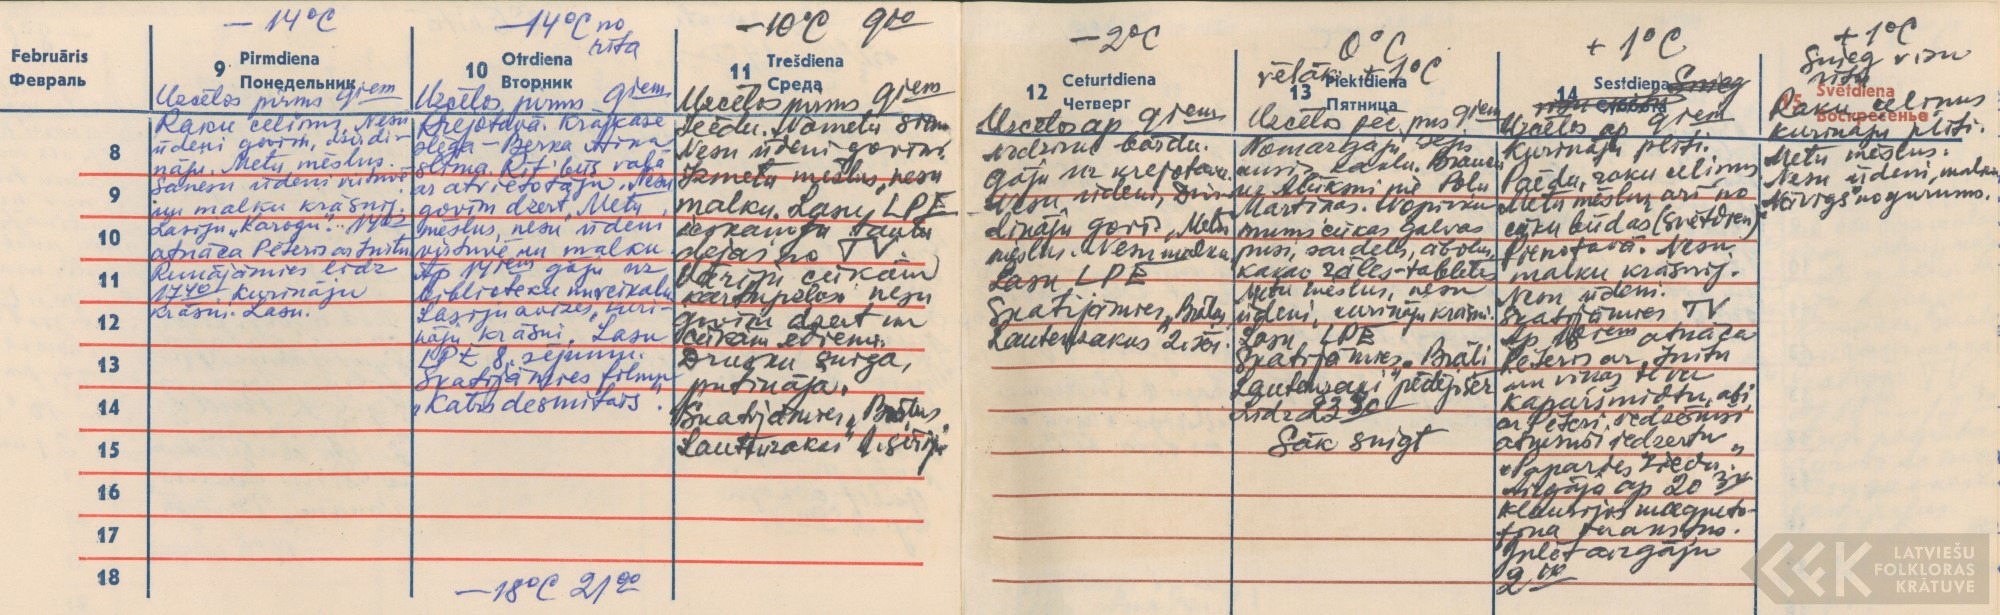 Februāris
Февраль
8
9
10
11
12
13
14
15
16
17
18
– 14°C
9 Pirmdiena
Понедельник
Uzcēlos pirms 9iem
Raku celiņus. Nesu
ūdeni govīm, dzirdi-
nāju. Metu mēslus.
Sanesu ūdeni virtuvē
un malku krāsnij.
Lasīju „Karogu”. 14
atnāca Pēteris ar Initu
Runājāmies līdz
17 40. Kurināju
krāsni. Lasu.
–14°C no
rīta
10 Otrdiena
Вторник
Uzcēlos pirms 9iem
Krejotavā. Krājkase
slēgta – Berka Aina
slima. Rīt būs vaļā
ar atvietotāju. Nesu
govīm dzert, Metu
mēslus, nesu ūdeni
virtuvē un malku.
Ap 14iem gāju uz
bibliotēku
Lasīju avīzes, kuri-
nāju krāsni. Lasu
LPE 8. sējumu.
Skatījāmies filmu
„Katrs desmitais”.
–18°C 21 00
–10°C 9 00
11 Trešdiena
Среда
Uzcēlos pirms 9iem
sēdu. Nometu
Nesu ūdeni govīm.
Izmetu mēslus, nesu
malku. Lasu LPE
tautu
dejas no TV
Vārīju cūkām
kartupeļus, nesu
govīm dzert un
cūkām ēdienu.
Drusku sniga,
putināja.
Skatījāmies „Brāļus
Lautenzakus” 1. sēriju.
–2°C
12 Ceturtdiena
Четверг
Uzcēlos ap 9iem
Nodzinu bārdu.
Gāju uz krejotavu
Nesu ūdeni, Dzir-
dināju govis, Metu
mēslus. Nesu malku.
Lasu LPE
Skatījāmies „Brāļus
Lautenzakus” 2. sēr.
0°C
vēlāk +1°C
13 Piektdiena
Пятница
Uzcēlos pēc pus 9iem
Nomazgāju seju
ausis, kaklu. Braucu
uz Alūksni pie Polu
Martiņas. Nopirku
mums cūkas galvas
pusi, sardeles, ābolus,
kakao zāles-tabletes
Metu mēslus, nesu
ūdeni, kurināju krāsni.
Lasu LPE
Skatījāmies „Brāļi
Lautenzaki” pēdējo sēr.
Līdz 22 30
Sāk snigt
+1°C
14 Sestdiena
Суббота
Uzcēlos ap 9iem
Kurināju plīti.
Paēdu, raku celiņus
Metu mēslus arī no
cūku būdas (svētdien)
Pienotavā. Nesu
malku krāsnij.
Nesu ūdeni.
Skatījāmies TV
Ap 18iem atnāca
Pēteris ar Initu
un viņas tēvu
Kaparsmidtu, abi
ar Pēteri iedzēruši,
atnesuši iedzertu
„Papardes ziedu”.
Aizgāja ap 20 30
Klausījos magneto-
fona
Gulēt aizgāju
2
+1°C
Snieg visu
rītu
15 Svētdiena
Воскресенье
Raku celiņus
Kurināju plīti.
Metu mēslus.
Nesu ūdeni, malku
„Nevīgš” nogurums.
LATVIEŠU
FOLKLORAS
KRĀTUVE